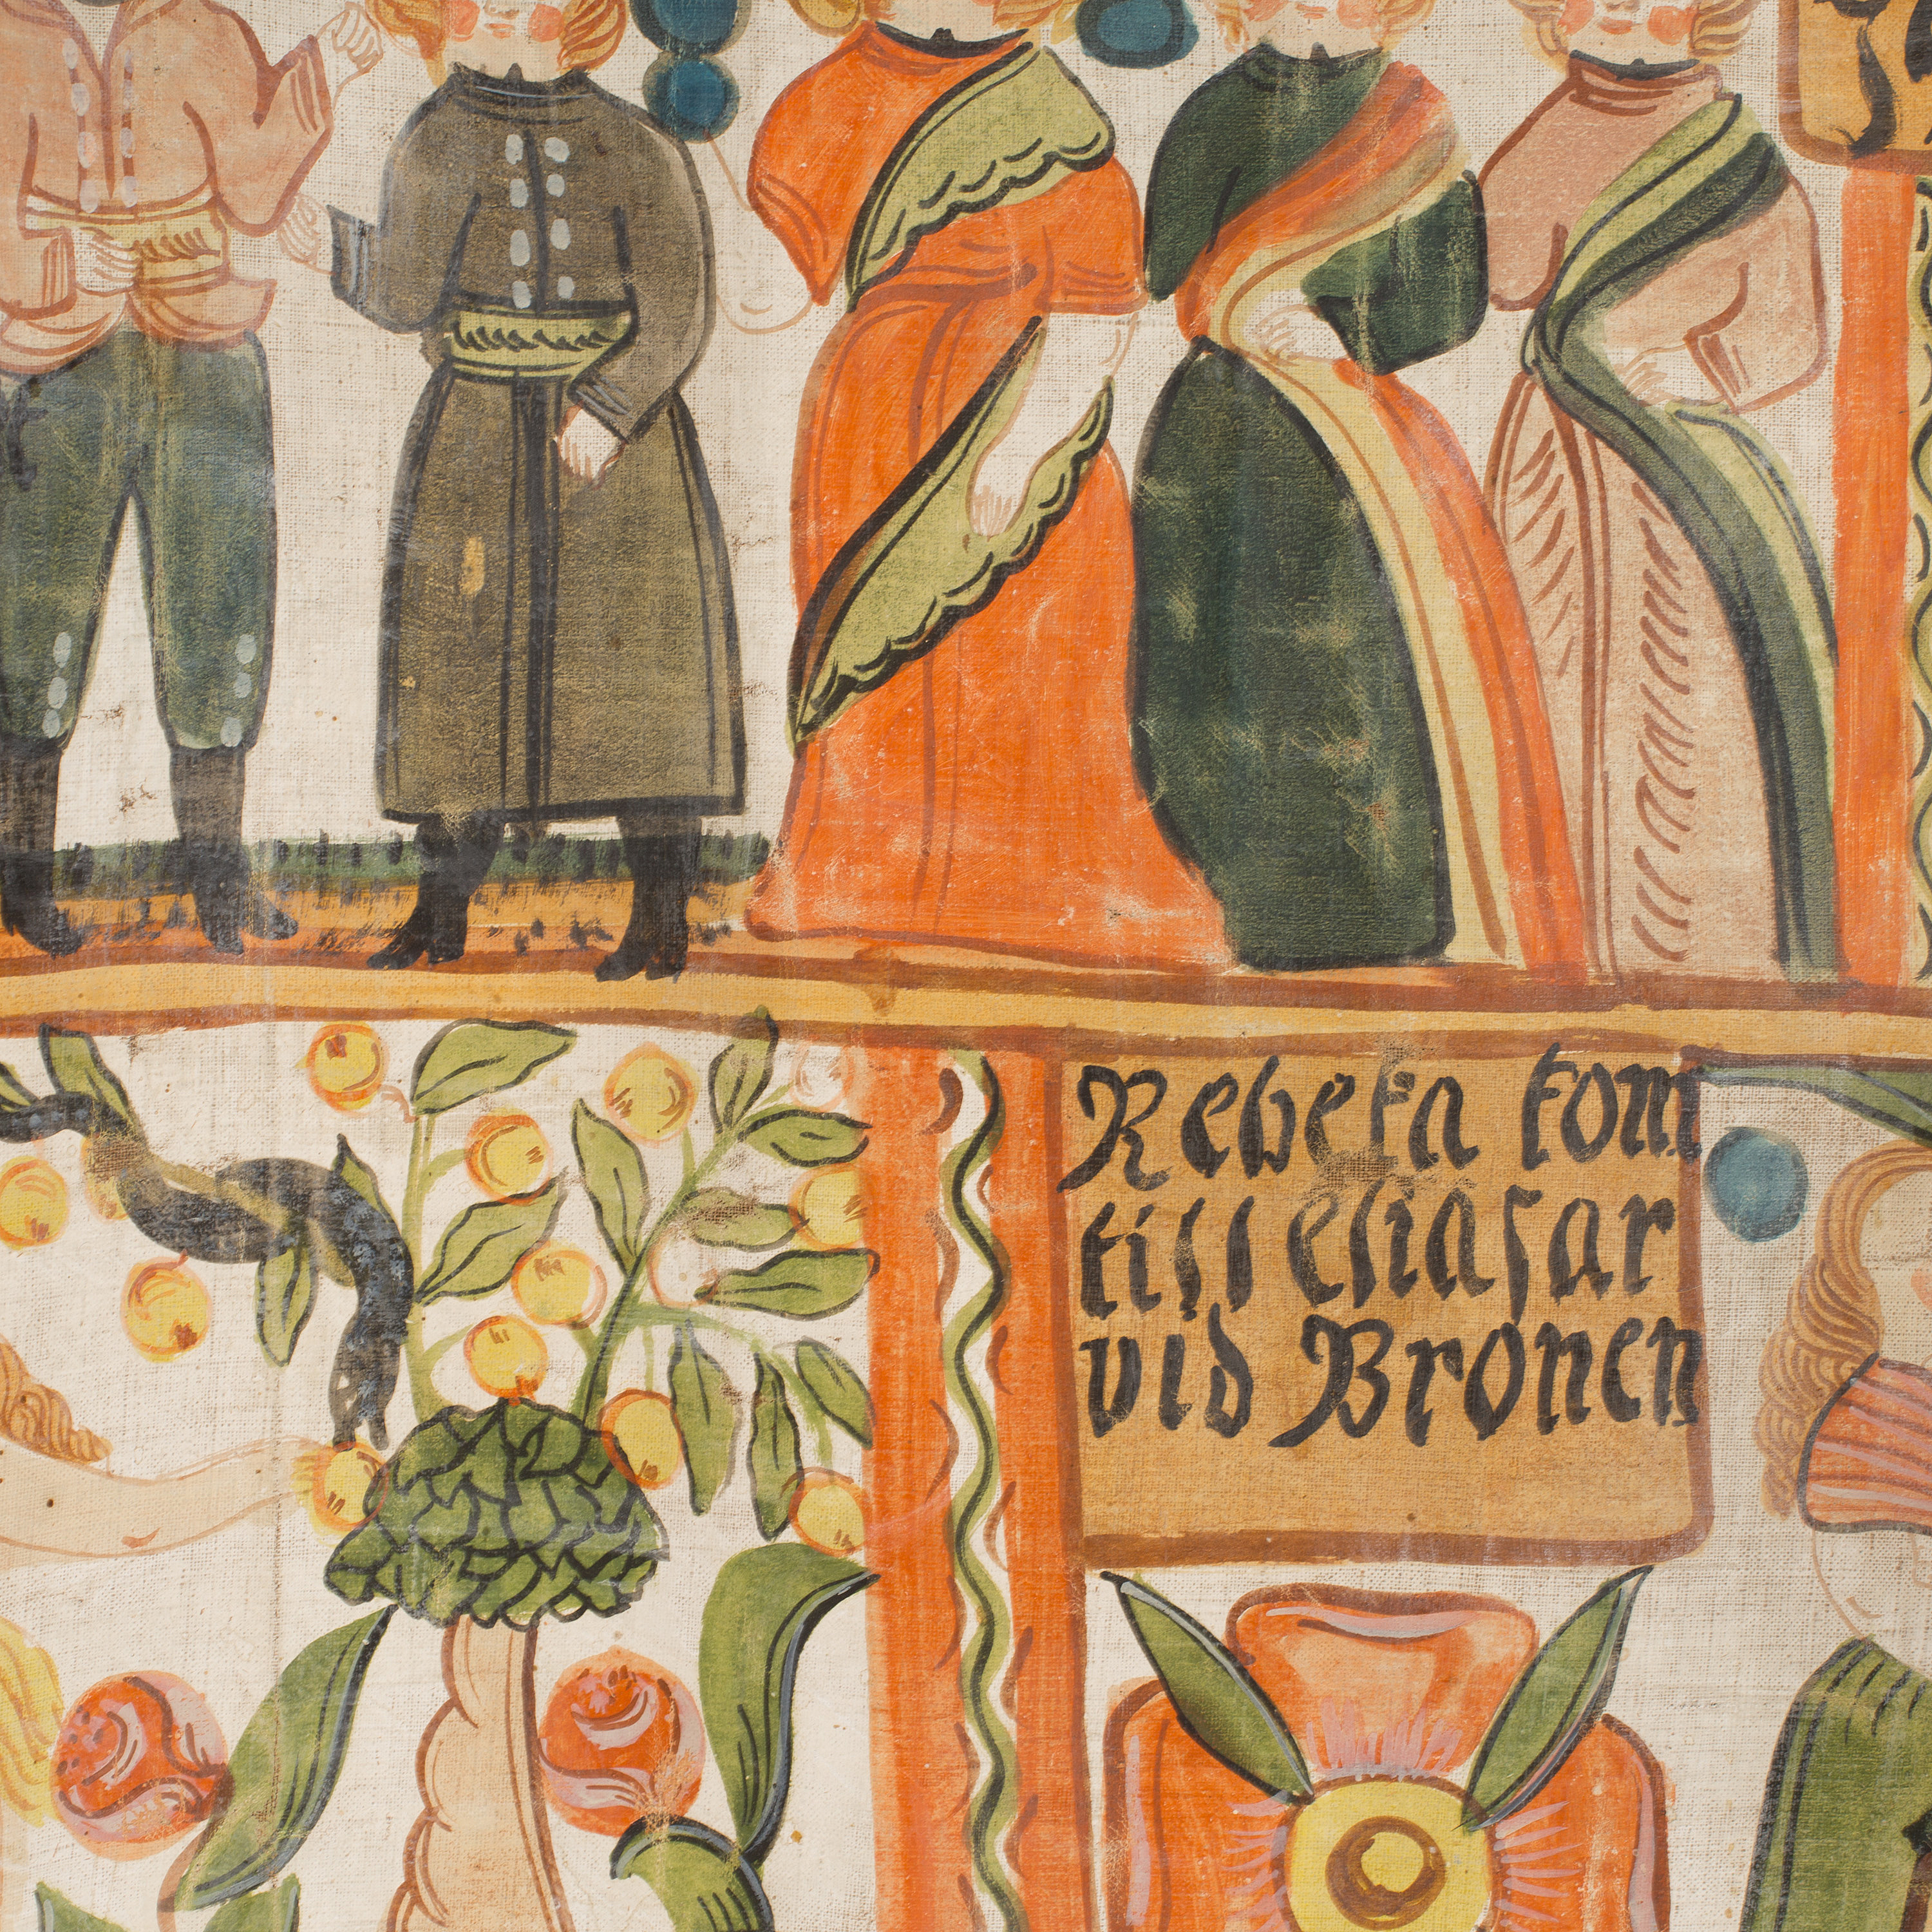 Rebeka kom
till eliasar
vid Bronen